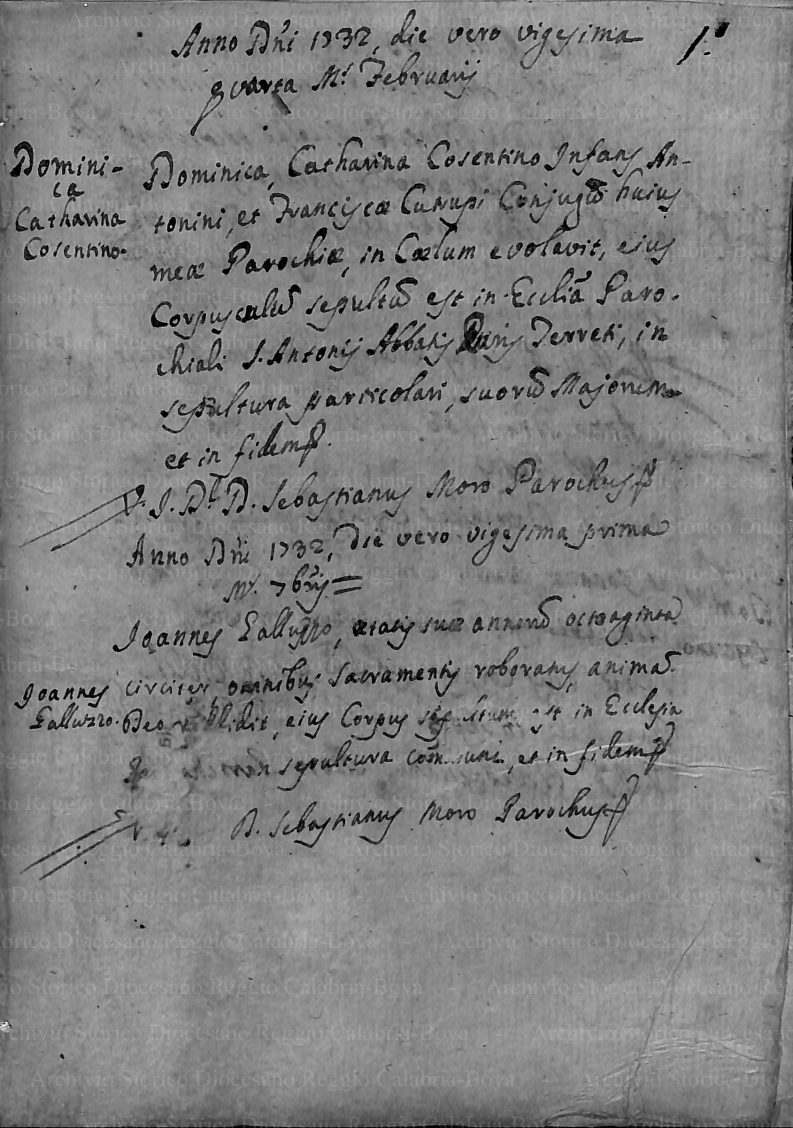 Anno Dñi 1732, die vero vigesima 1.
quarta M.s Februarij
Domini-
ca
Catharina
Cosentino.
Dominica, Catharina Cosentino Infans An-
tonini, et Franciscæ Cutrupi Conjugũ huius
meæ Parochiæ, in Cœlum evolavit, eius
Corpusculũ sepultũ est in Ecclĩa Paro-
chiali S. Antonij Abbatis Terreti, in
sepultura particolari, suorũ Majorum
et in fidem
V. J. D.r D. Sebastianus Moro Parochus
Anno Dñi 1732, die vero vigesima prima
M.s 7bris =
Joannes
Galluzzo.
Joannes Galluzzo, ætatis suæ annorũ octoaginta
circiter, omnibus sacramentis roboratus, animã
Deo reddidit, eius Corpus sepultum est in Ecclesia
in sepultura communi, et in fidem
D. Sebastianus Moro Parochus